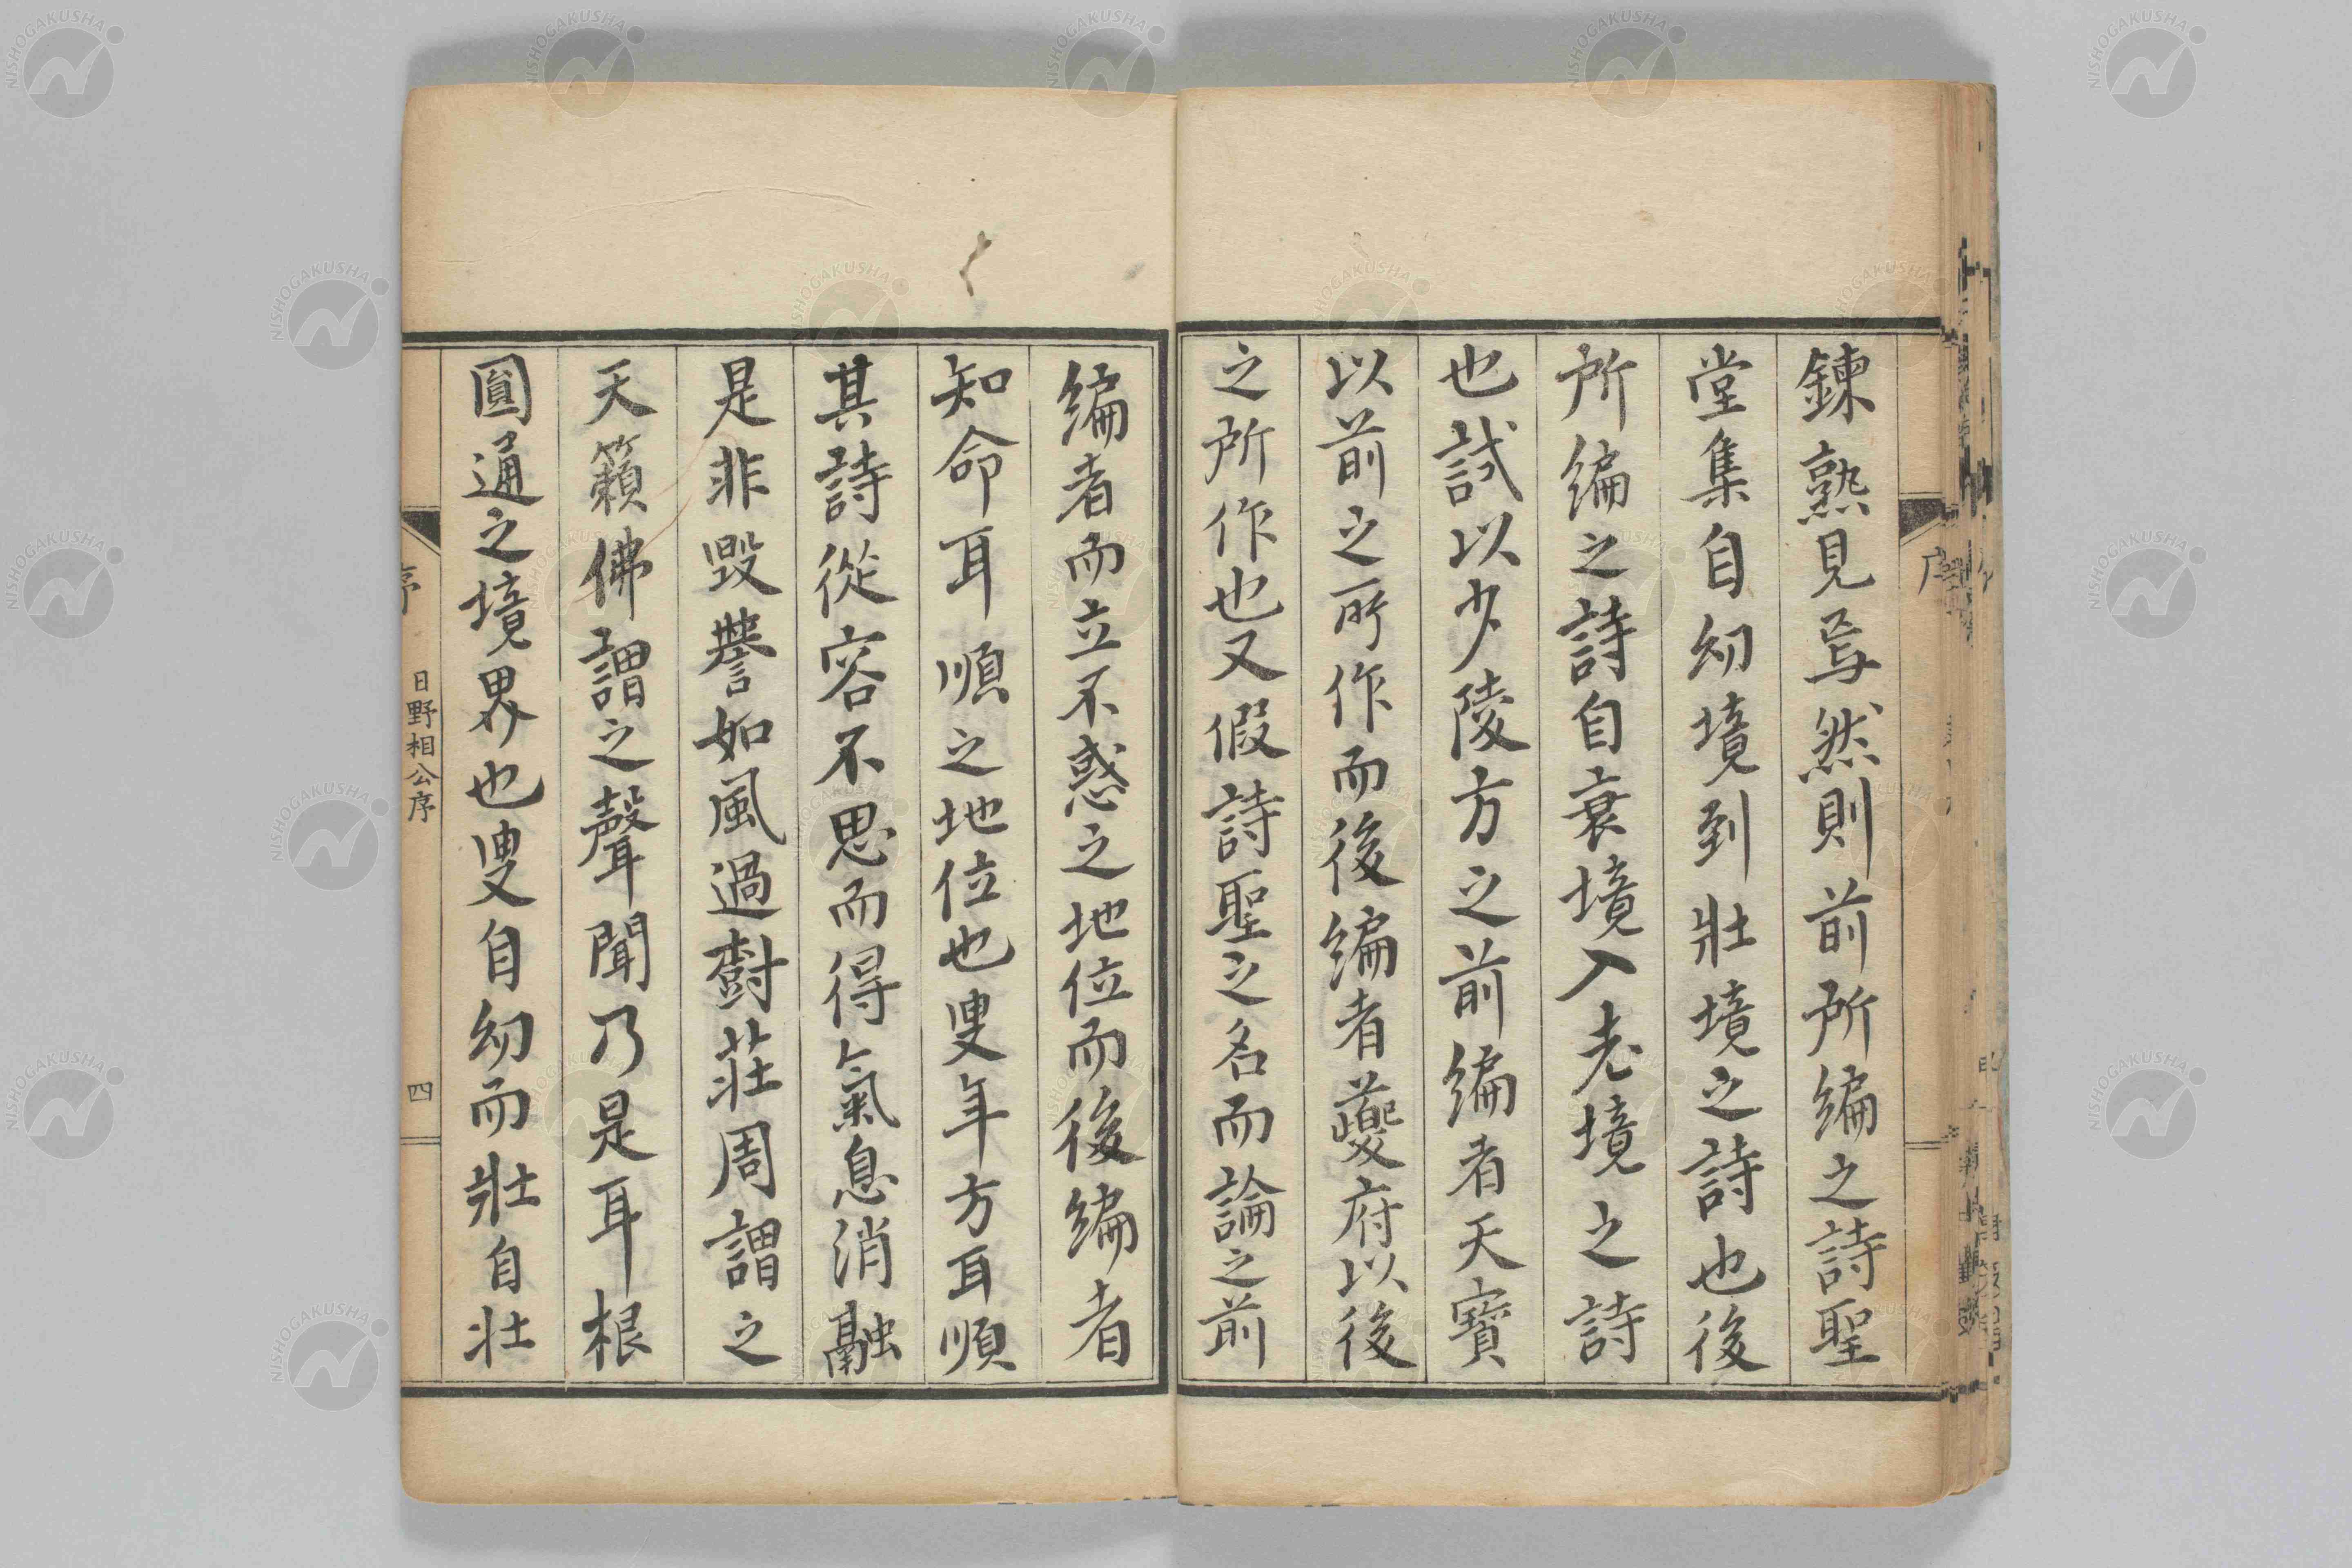 鍊熟見焉然則前所編之詩聖
堂集自幼境到壯境之詩也後
所編之詩自衰境入老境之詩
也試以少陵方之前編者天寶
以前之所作而後編者夔府以後
之所作也又假詩聖之名而論之前
編者而立不惑之地位而後編者
知命耳順之地位也叟年方耳順
其詩從容不思而得氣息消融
是非毀譽如風過樹莊周謂之
天籟佛謂之聲聞乃是耳根
圓通之境界也叟自幼而壯自壯
序 日野相公序 四
NISHOGAKUSHA